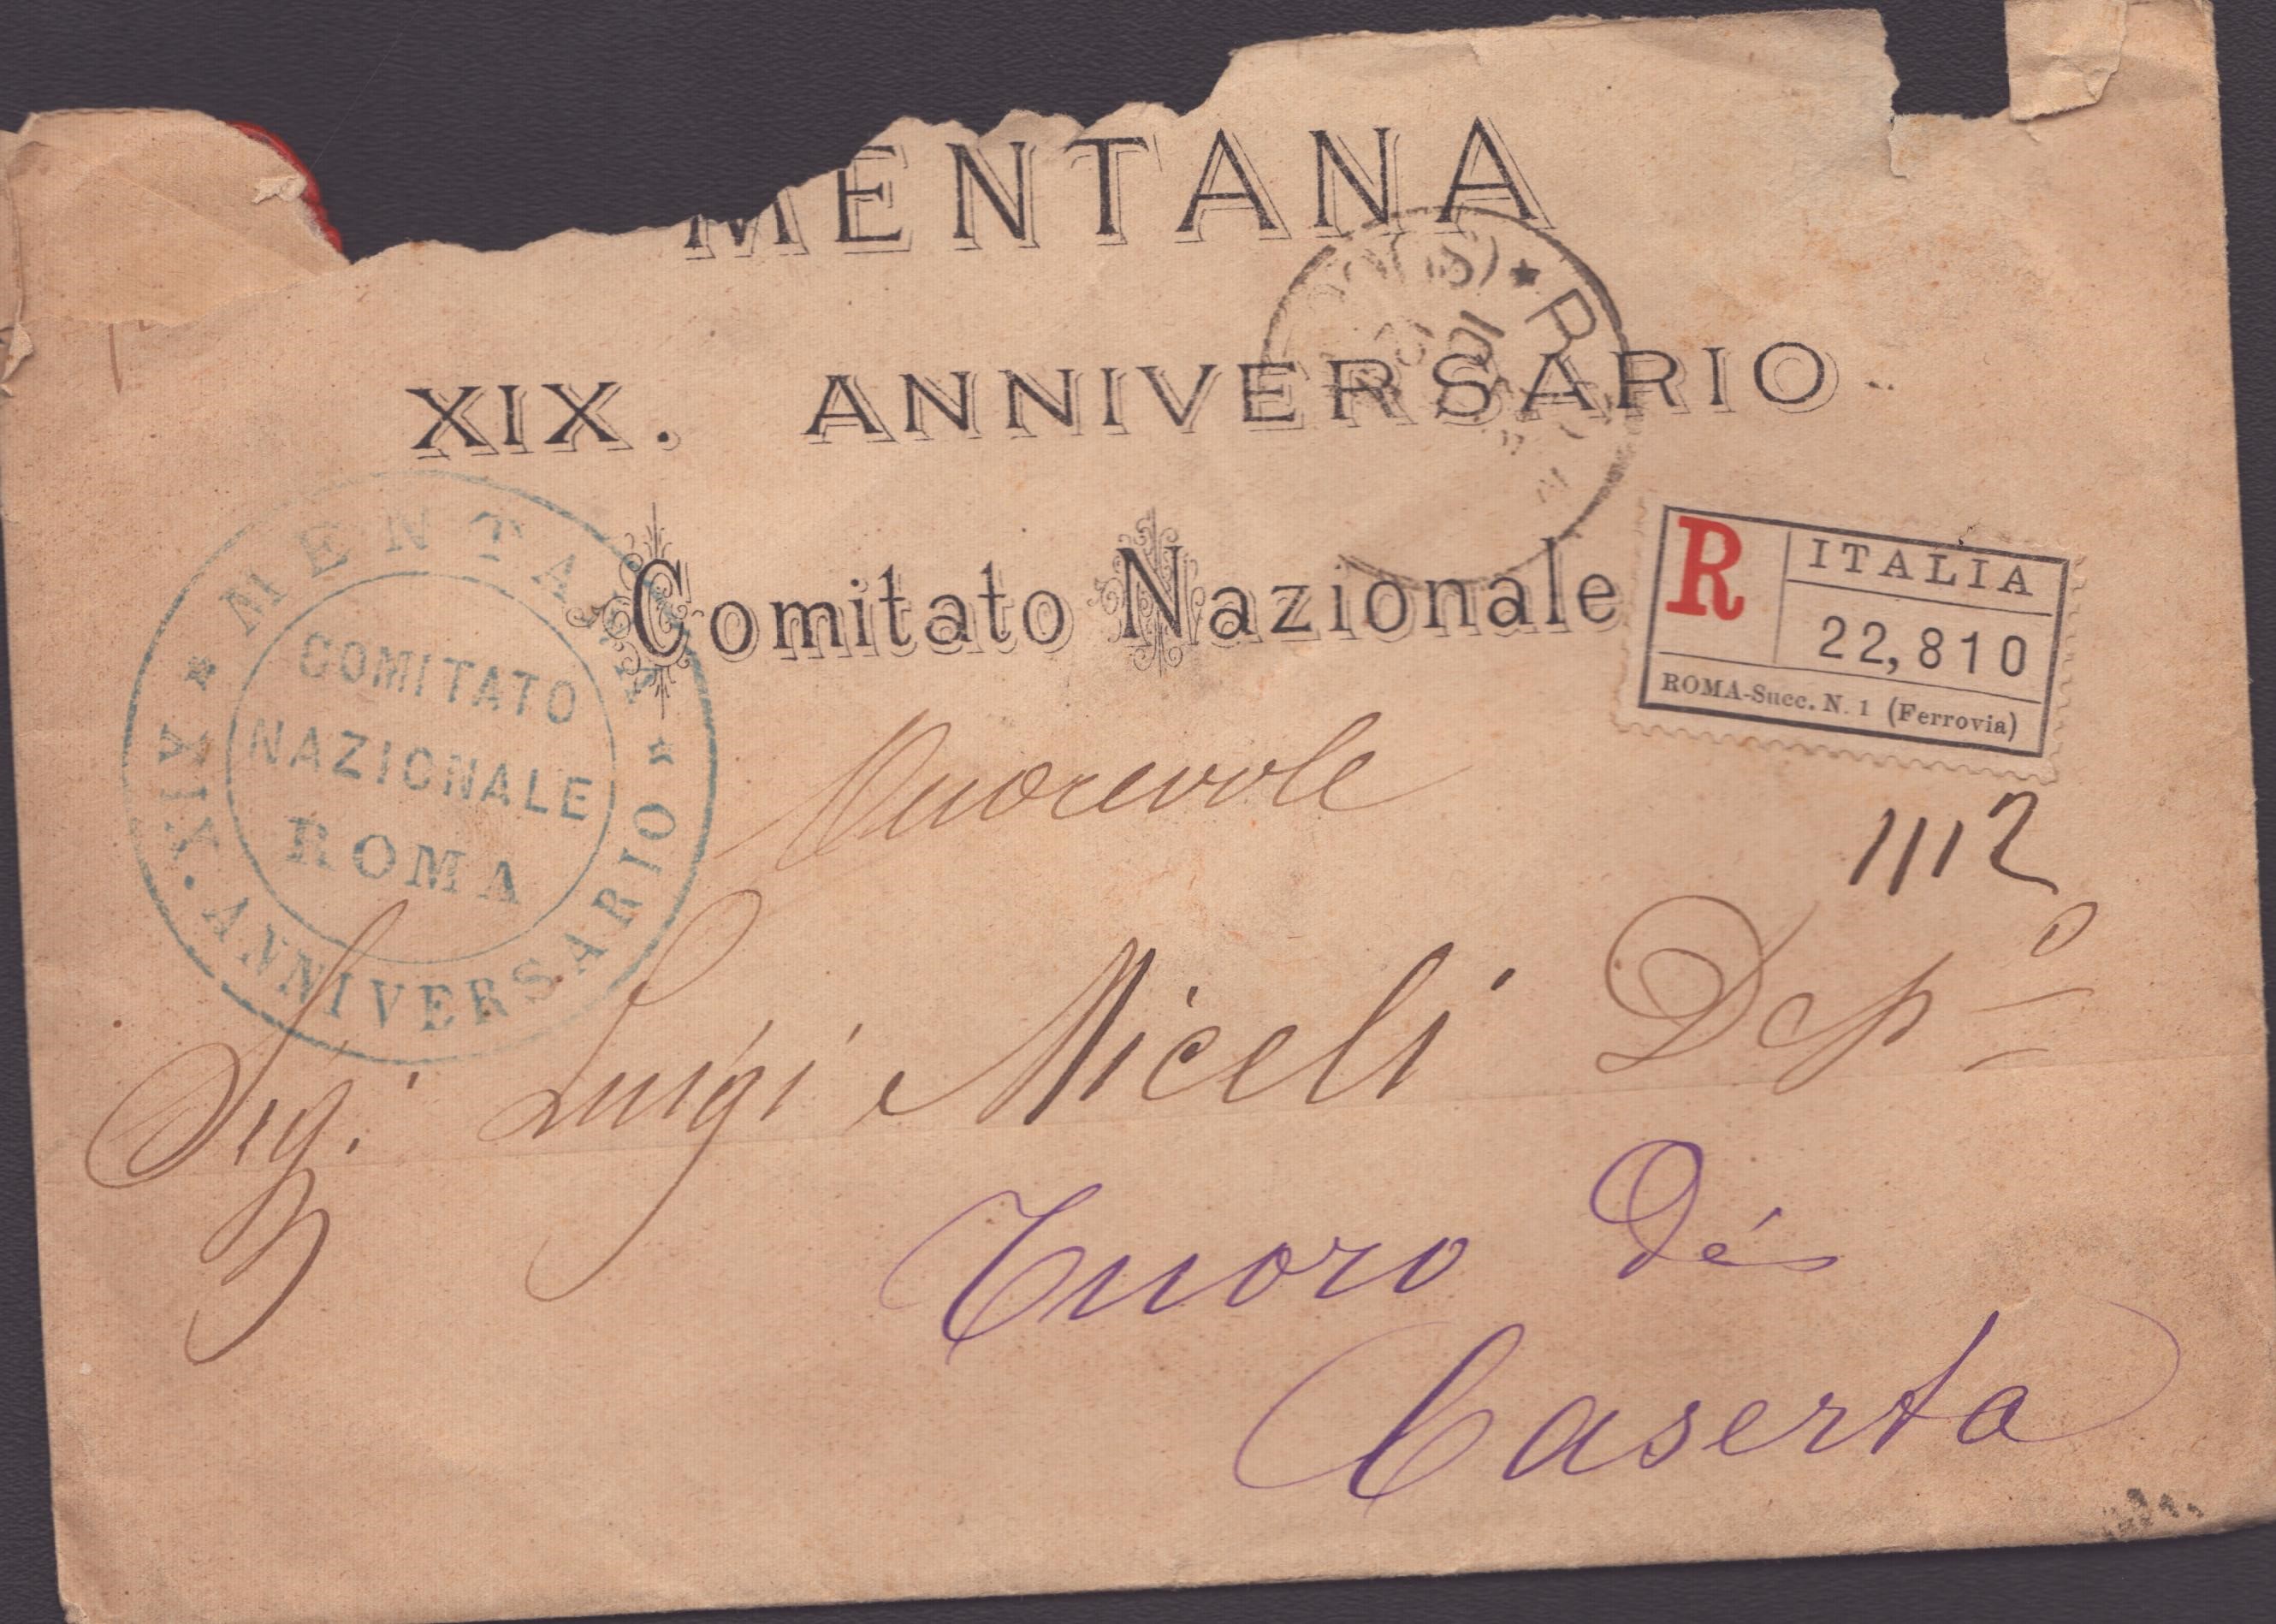 MENTANA
XIX. ANNIVERSARIO
Comitato Nazionale
MENTANA
COMITATO
NAZIONALE
ROMA
XIX. ANNIVERSARIO
R ITALIA
22,810
ROMA-Succ. N. 1 (Ferrovia)
1112
Onorevole
Sig. Luigi Miceli Dep°
Tuoro
Caserta